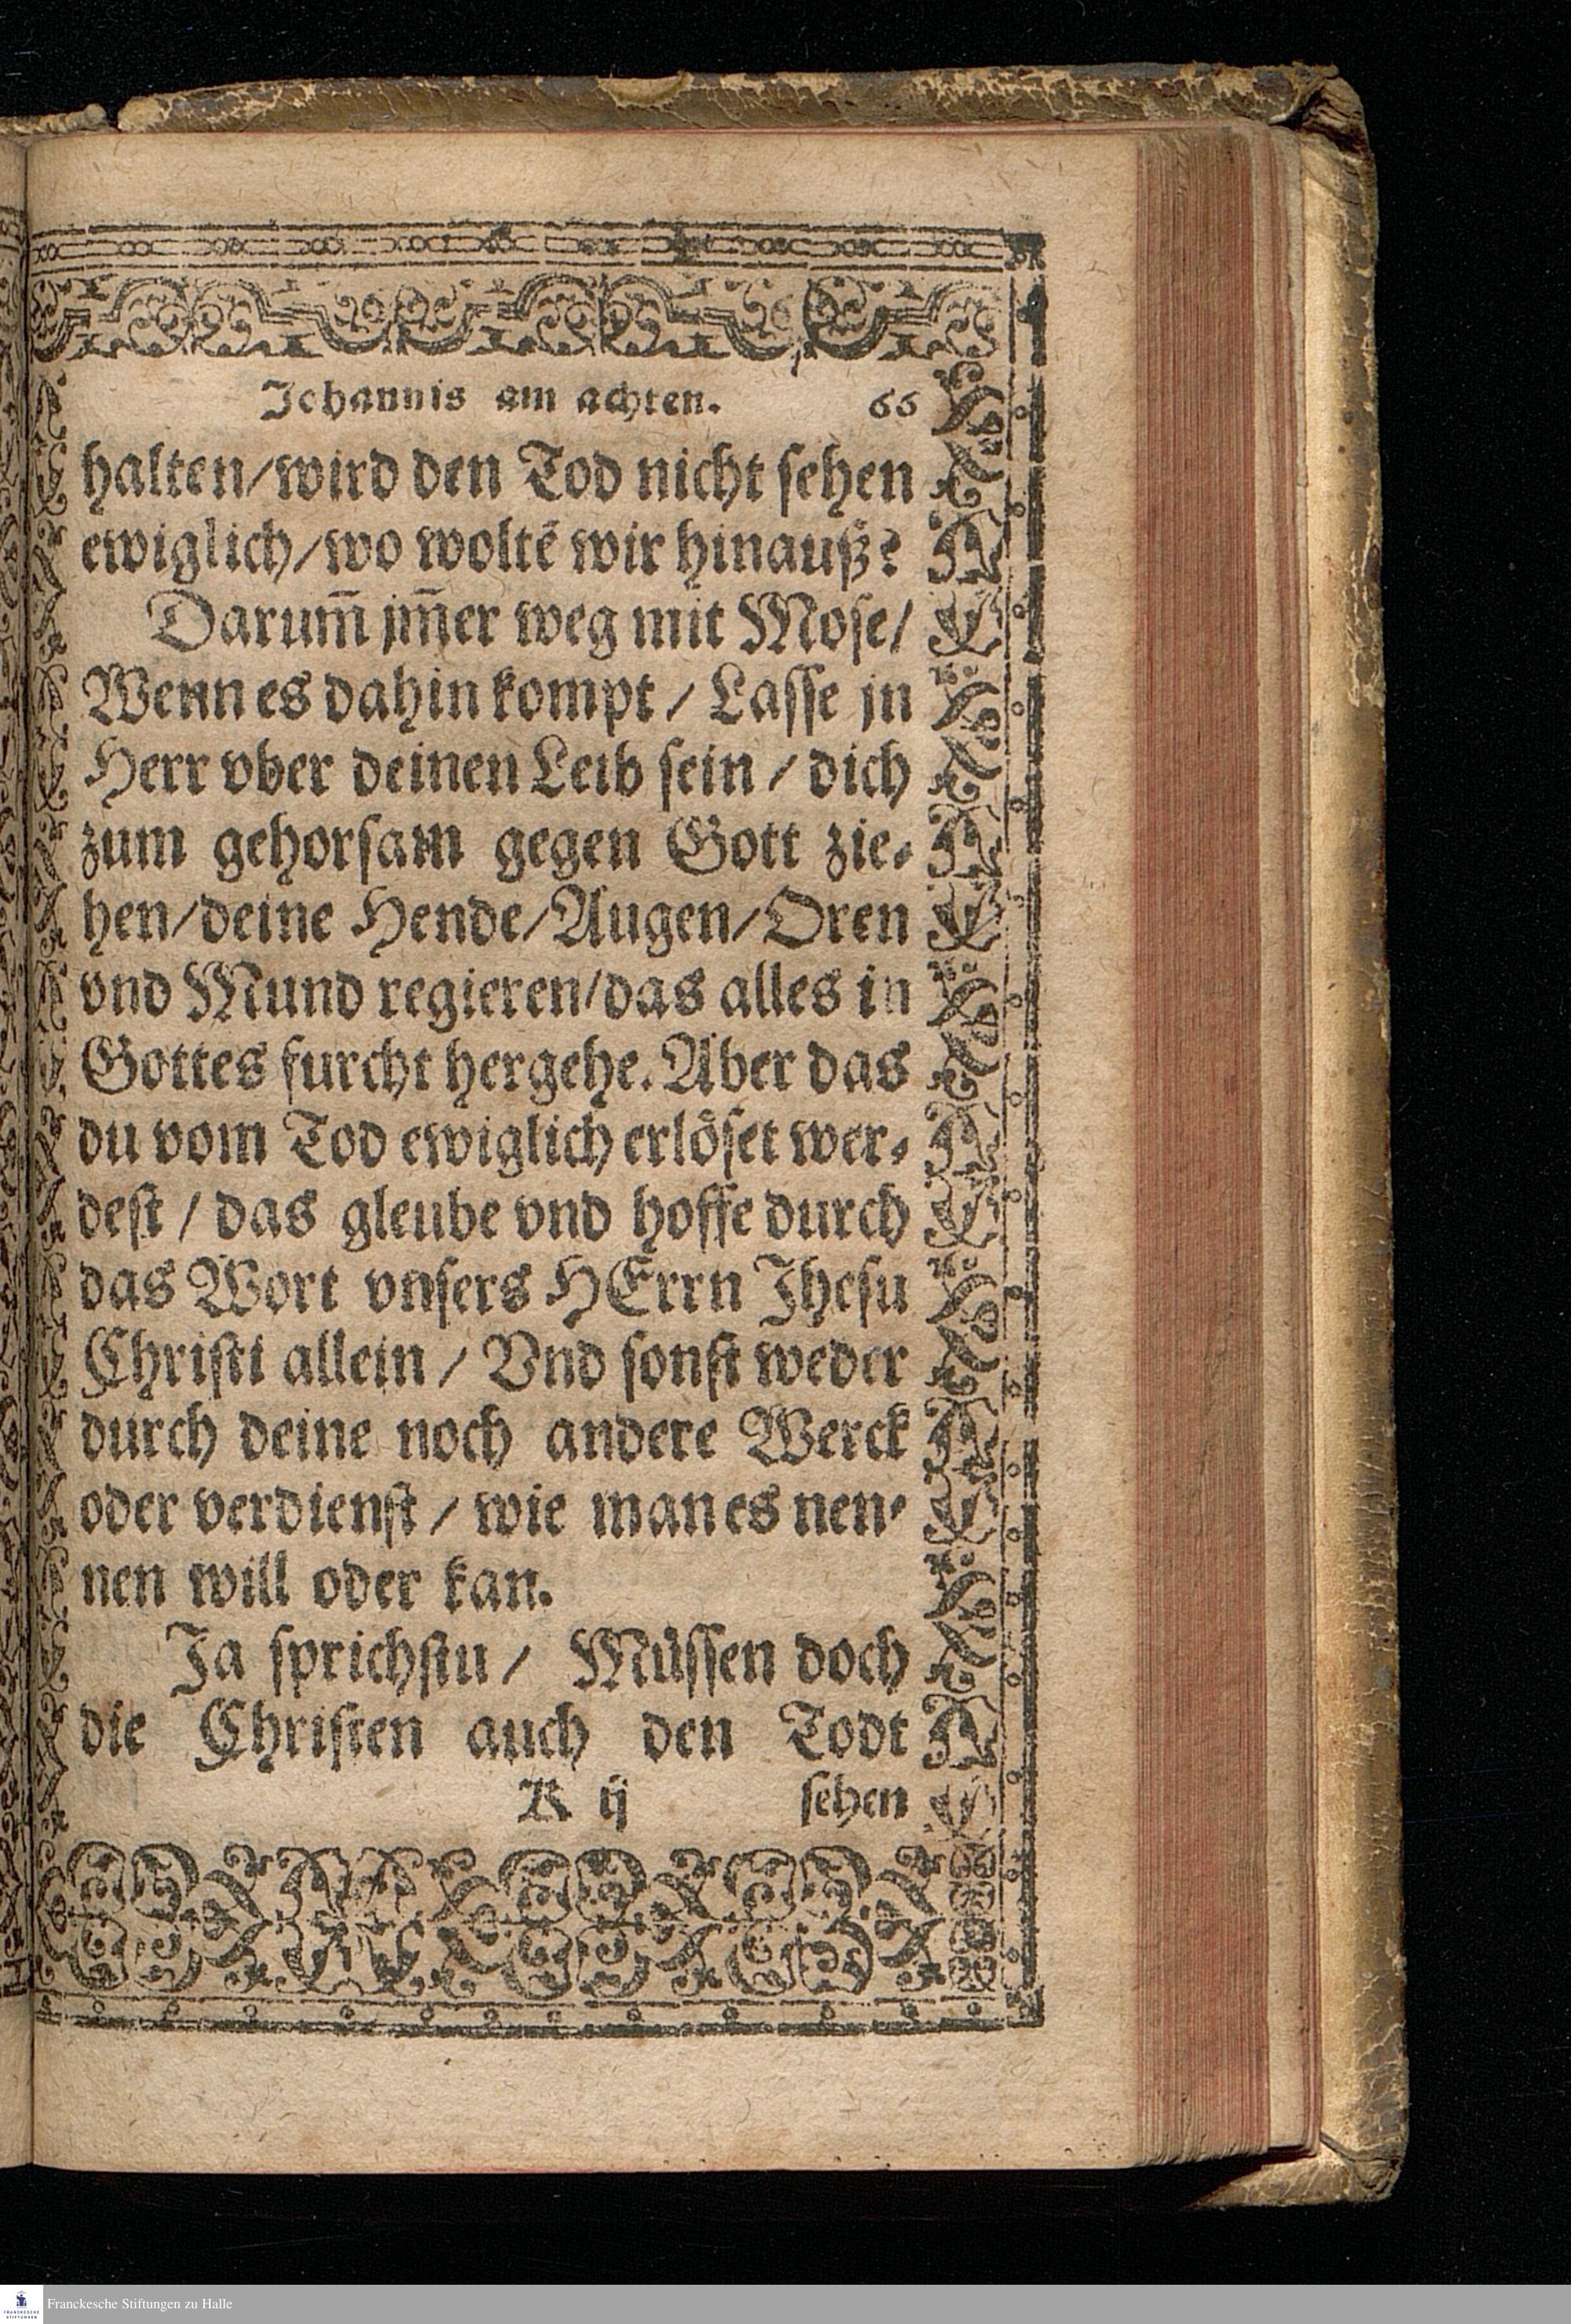 Johannis am achten. 66
halten/wird den Tod nicht sehen
ewiglich/wo woltē wir hinauß?
Darum̄ jm̄er weg mit Mose/
Wenn es dahin kompt/ Lasse jn
Herr vber deinen Leib sein/ dich
zum gehorsam gegen Gott zie-
hen/deine Hende/Augen/Oren
vnd Mund regieren/das alles in
Gottes furcht hergehe. Aber das
du vom Tod ewiglich erlöset wer-
dest/ das gleube vnd hoffe durch
das Wort vnsers HErrn Jhesu
Christi allein/ Vnd sonst weder
durch deine noch andere Werck
oder verdienst/ wie man es nen-
nen will oder kan.
Ja sprichstu/ Müssen doch
die Christen auch den Todt
K ij sehen
Franckesche Stiftungen zu Halle
FRANCKESCHE
STIFTUNGEN